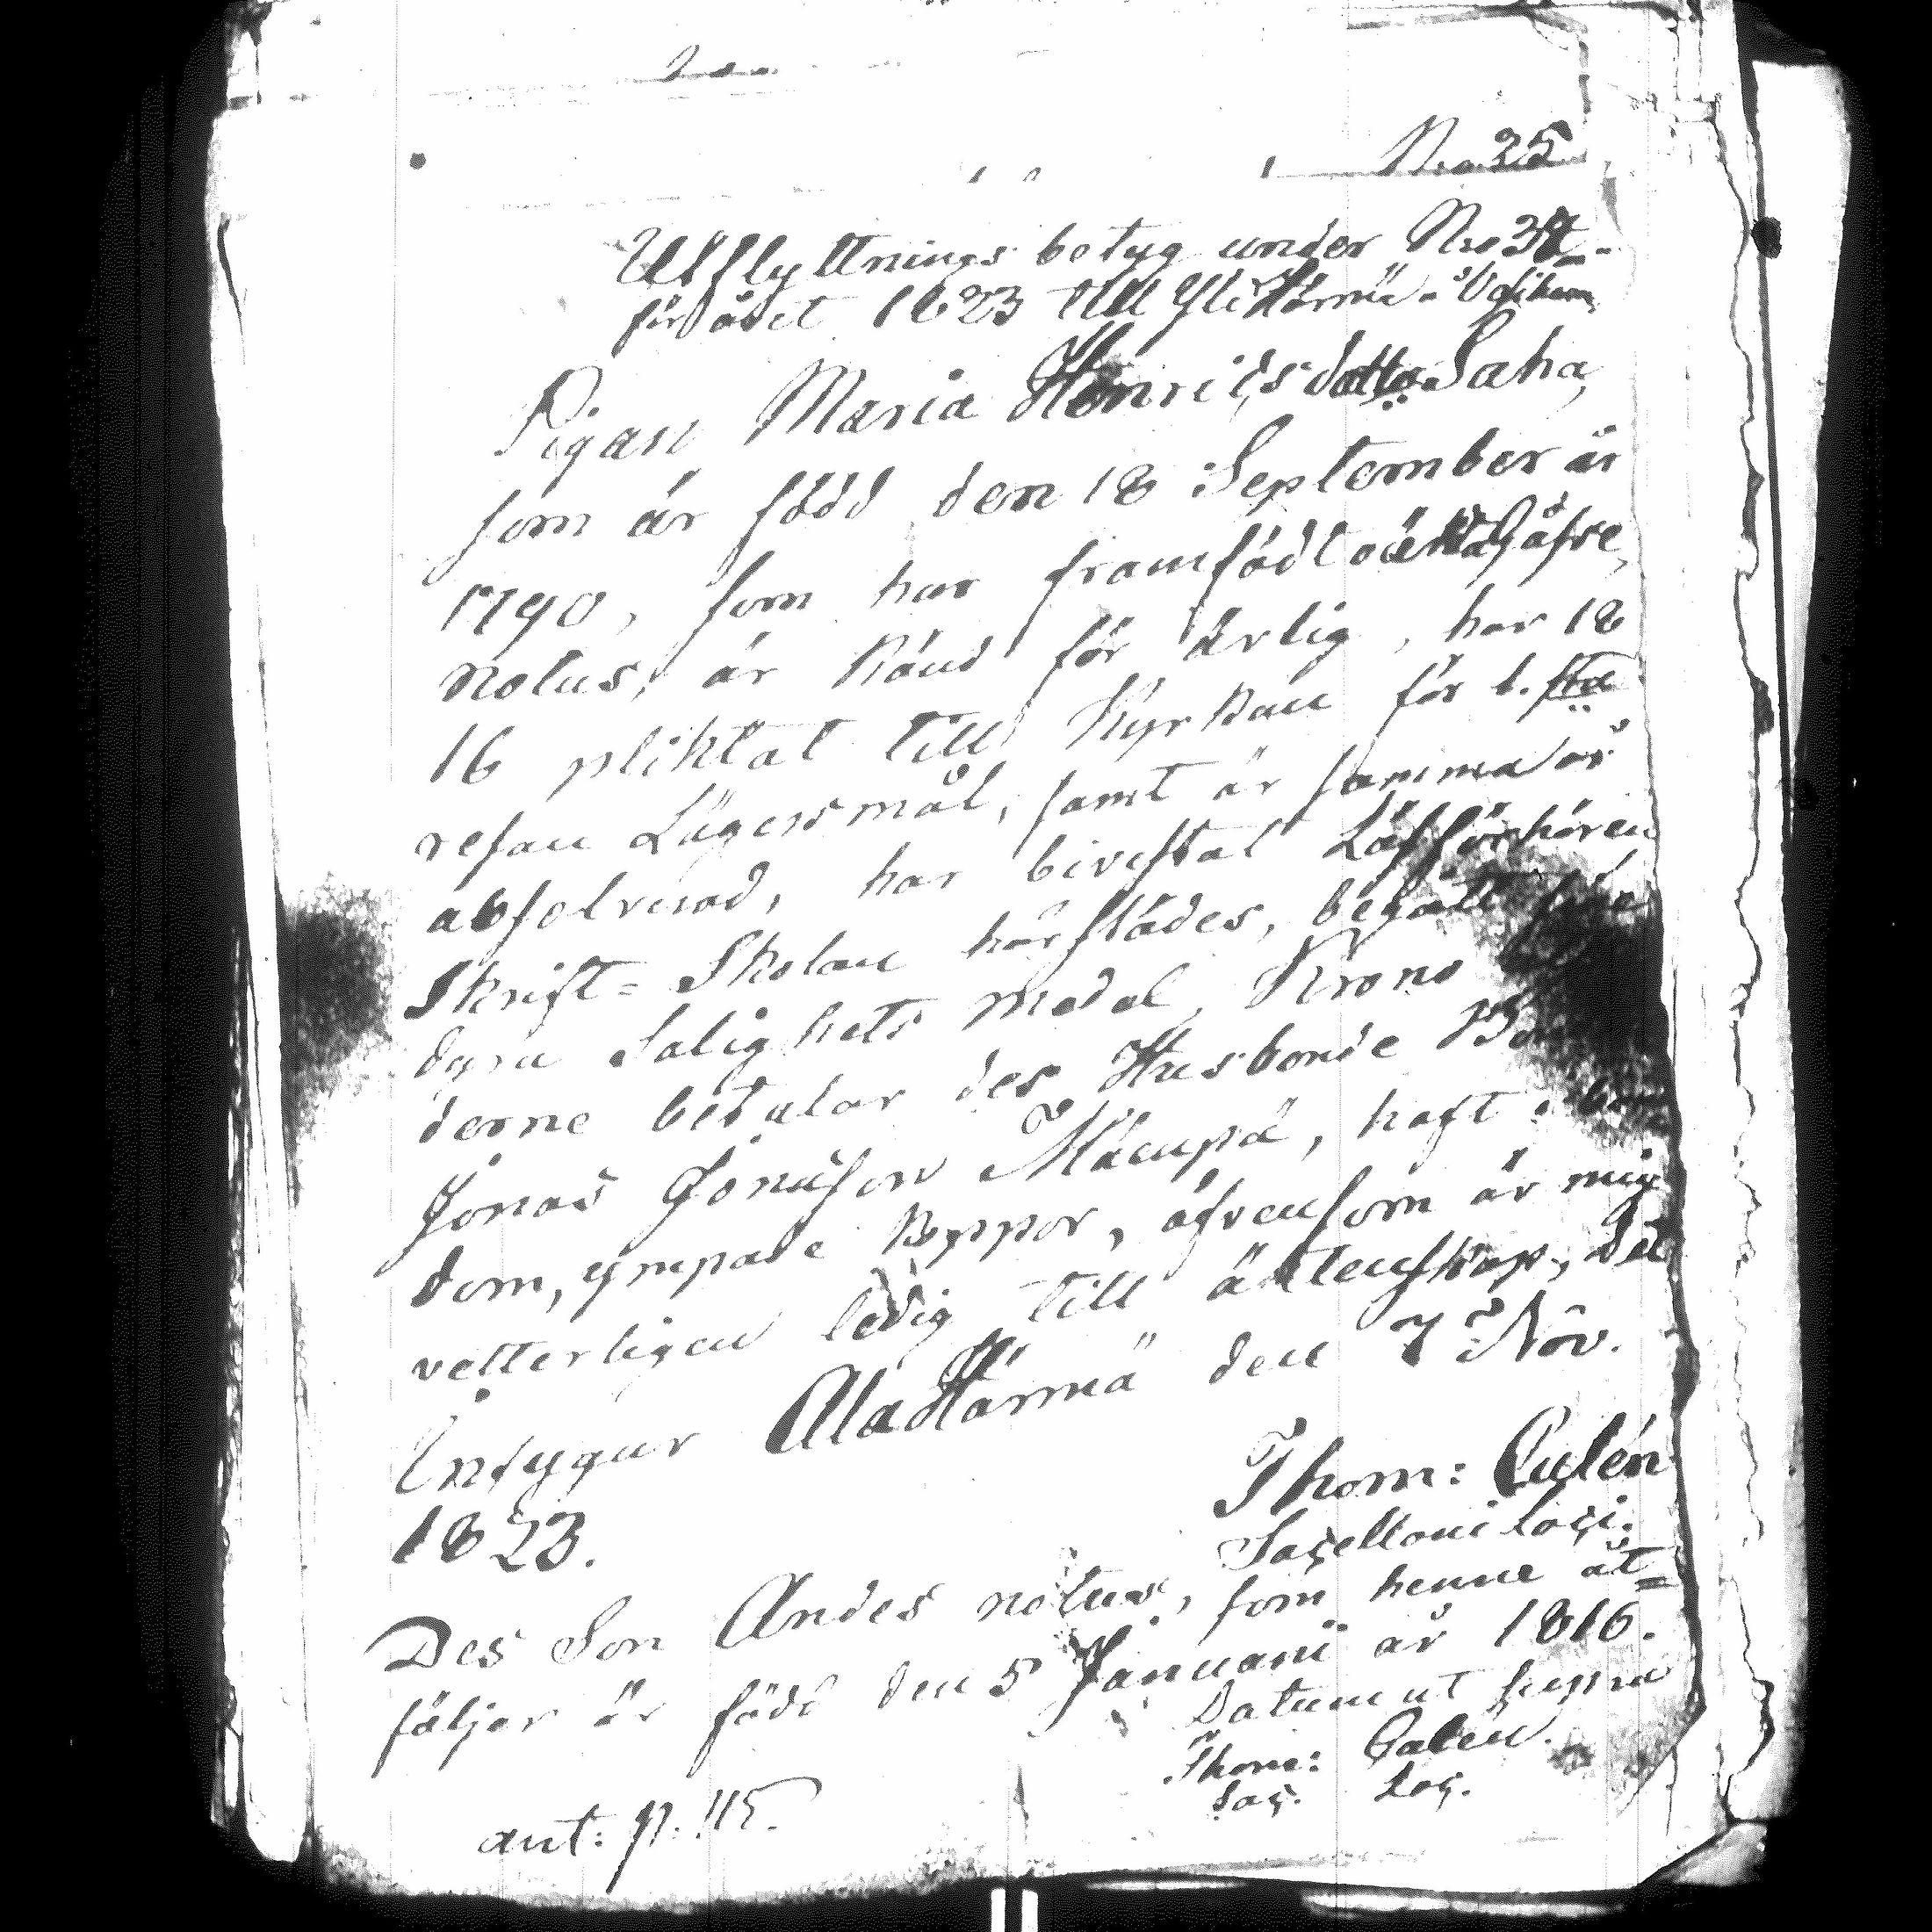 No 25
Utflyttnings betyg under No
för året 1823 till Yli Härmä
Pigan Maria Henricsdotter Saha,
som är född den 18 September år
1790, som har framfödt oäkta
notus, är känd för ärlig, har 18
16 pliktat till Kyrkan för 1. sta
resan Lägersmål, samt är samma år
absolverad, har bivistat Läsförhören
Skrift-Skolan härstädes, begått
dyra Salighets medel, Krono
derne betalar des Husbonde
Jonas Jonasson Mäenpä, haft
dom, ympade koppor, äfvensom är mig
vetterligen ledig till äktenskap, Det
Intygar Ala Härmä den 7 Nov.
1823.
Thom:
Sacellani loci.
Des Son Andes notus, som henne åt=
följer är född den 5 Januarii år 1816.
Datum ut supra
Thom:
Sac. Loc.
ant: p. 115.